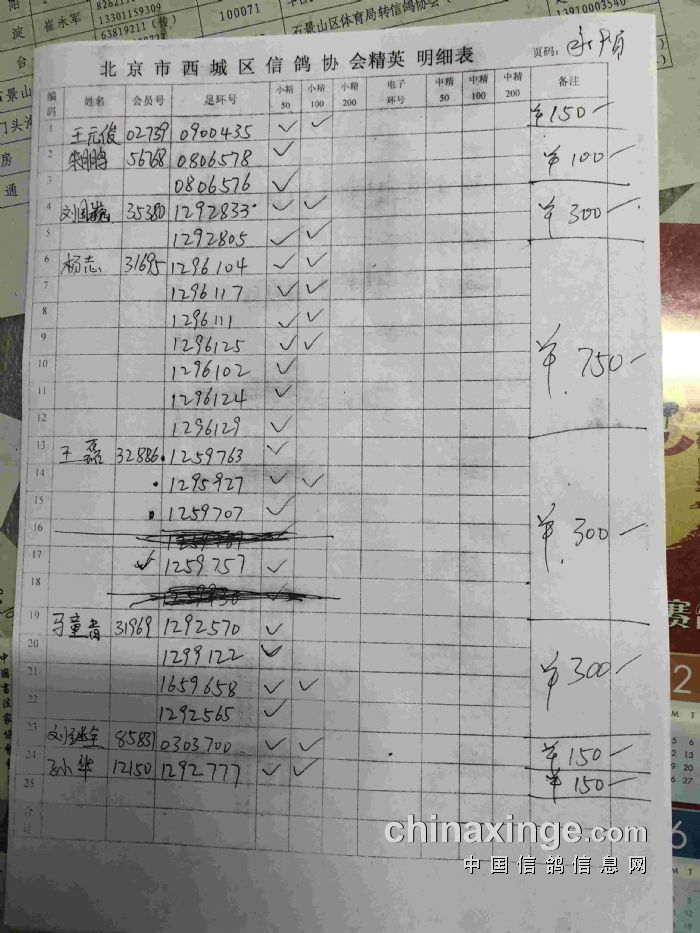 崔永军
13301159309
63819211（传）
100071
石景山区体育局转信鸽协会
13910003540
北京市西城区信鸽协会精英 明细表
页码：
编码 姓名 会员号 足环号 小精50 小精100 小精200 电子环号 中精50 中精100 中精200 备注
1 王元俊 02739 0900435 ✓ ✓ ¥150—
2 朱鹏 56768 0806578 ✓ ¥100—
3 0806576 ✓
4 刘国巍 35380 1292833 ✓ ✓ ¥300—
5 1292805 ✓ ✓
6 杨志 31695 1296104 ✓ ✓
7 1296117 ✓ ✓
8 1296111 ✓ ✓
9 1296125 ✓ ✓ ¥.750—
10 1296102 ✓
11 1296124 ✓
12 1296129 ✓
13 王磊 32886 1259763 ✓
14 1295927 ✓ ✓
15 1259707 ✓
16 ¥.300—
17 ✓ 1259757 ✓
18
19 31969 1292570 ✓
20 1299122 ✓
21 1659658 ✓ ✓ ¥300—
22 1292565 ✓
23 85831 0303700 ✓ ✓ ¥150—
24 孙华 12150 1292777 ✓ ✓ ¥150—
25
合计
chinaxinge.com
中国信鸽信息网